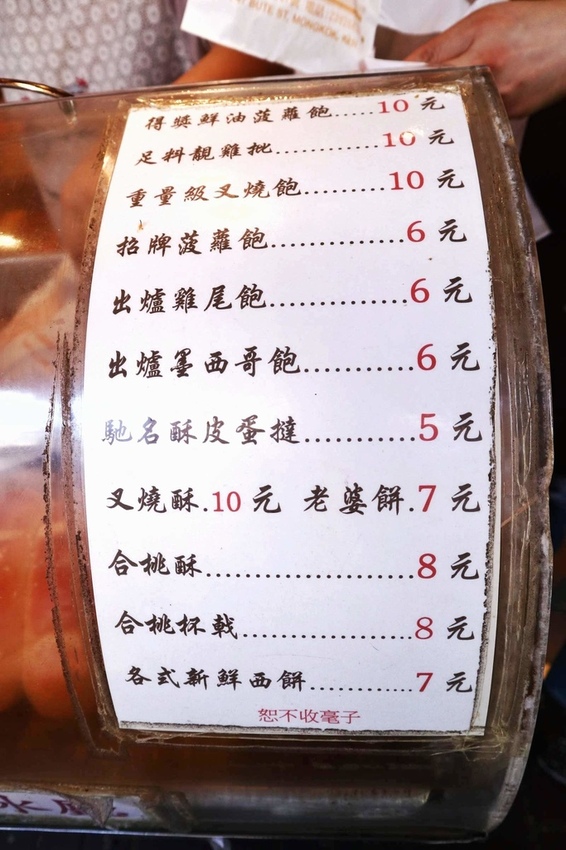 BUTE ST. MONGKOK
得獎鮮油菠蘿飽.....10元
足料靚雞批............10元
重量級叉燒飽.........10元
招牌菠蘿飽..............6元
出爐雞尾飽..............6元
出爐墨西哥飽...........6元
馳名酥皮蛋撻...........5元
叉燒酥.10元 老婆餅.7元
合桃酥......................8元
合桃杯戟..................8元
各式新鮮西餅............7元
恕不收毫子